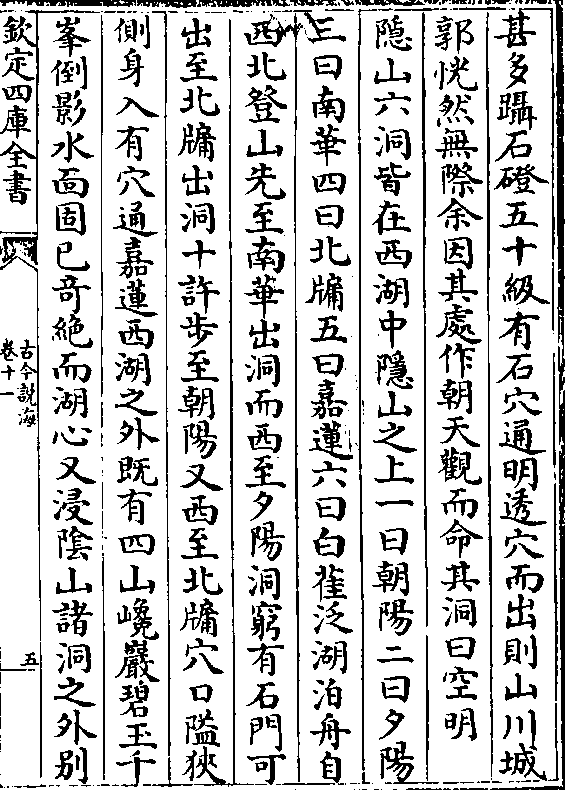 甚多躡石磴五十級有石穴通明透穴而出則山川城
郭恍然無際余因其處作朝天觀而命其洞曰空明
隱山六洞皆在西湖中隱山之上一曰朝陽二曰夕陽
三曰南華四曰北牖五曰嘉蓮六曰白雀泛湖泊舟自
西北登山先至南華出洞而西至夕陽洞窮有石門可
出至北牖出洞十許步至朝陽又西至北牖穴口隘狹
側身入有穴通嘉蓮西湖之外既有四山巉巖碧玉千
峯倒影水面固已奇絶而湖心又浸陰山諸洞之外别
欽定四庫全書
古今説海
卷十一
五